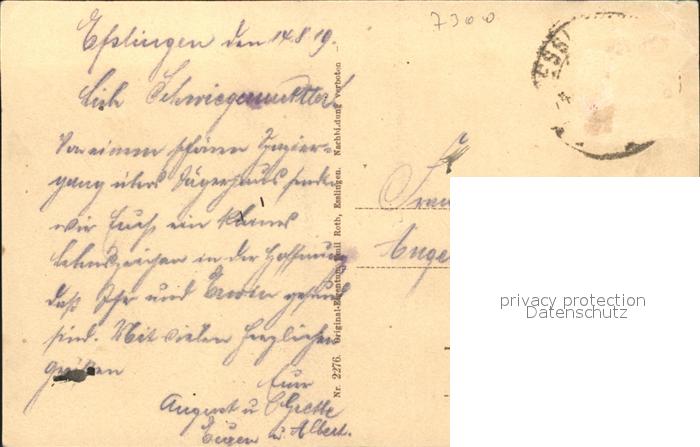 7300
Eßlingen den 14.8.19.
Lieb Schwiegermutter!
Von einem schönen Spazier=
gang übers Jägerhaus senden
wir Euch ein kleines
Lebenszeichen in der Hoffnung
daß Ihr und Erwin gesund
sind. Mit vielen herzlichen
Grüßen
Eure
August u Grethe
Eugen u. Albert.
Nr. 2276. Original-Eigentum Emil Roth, Esslingen. Nachbildung verboten
ESS
Frau
privacy protection
Datenschutz